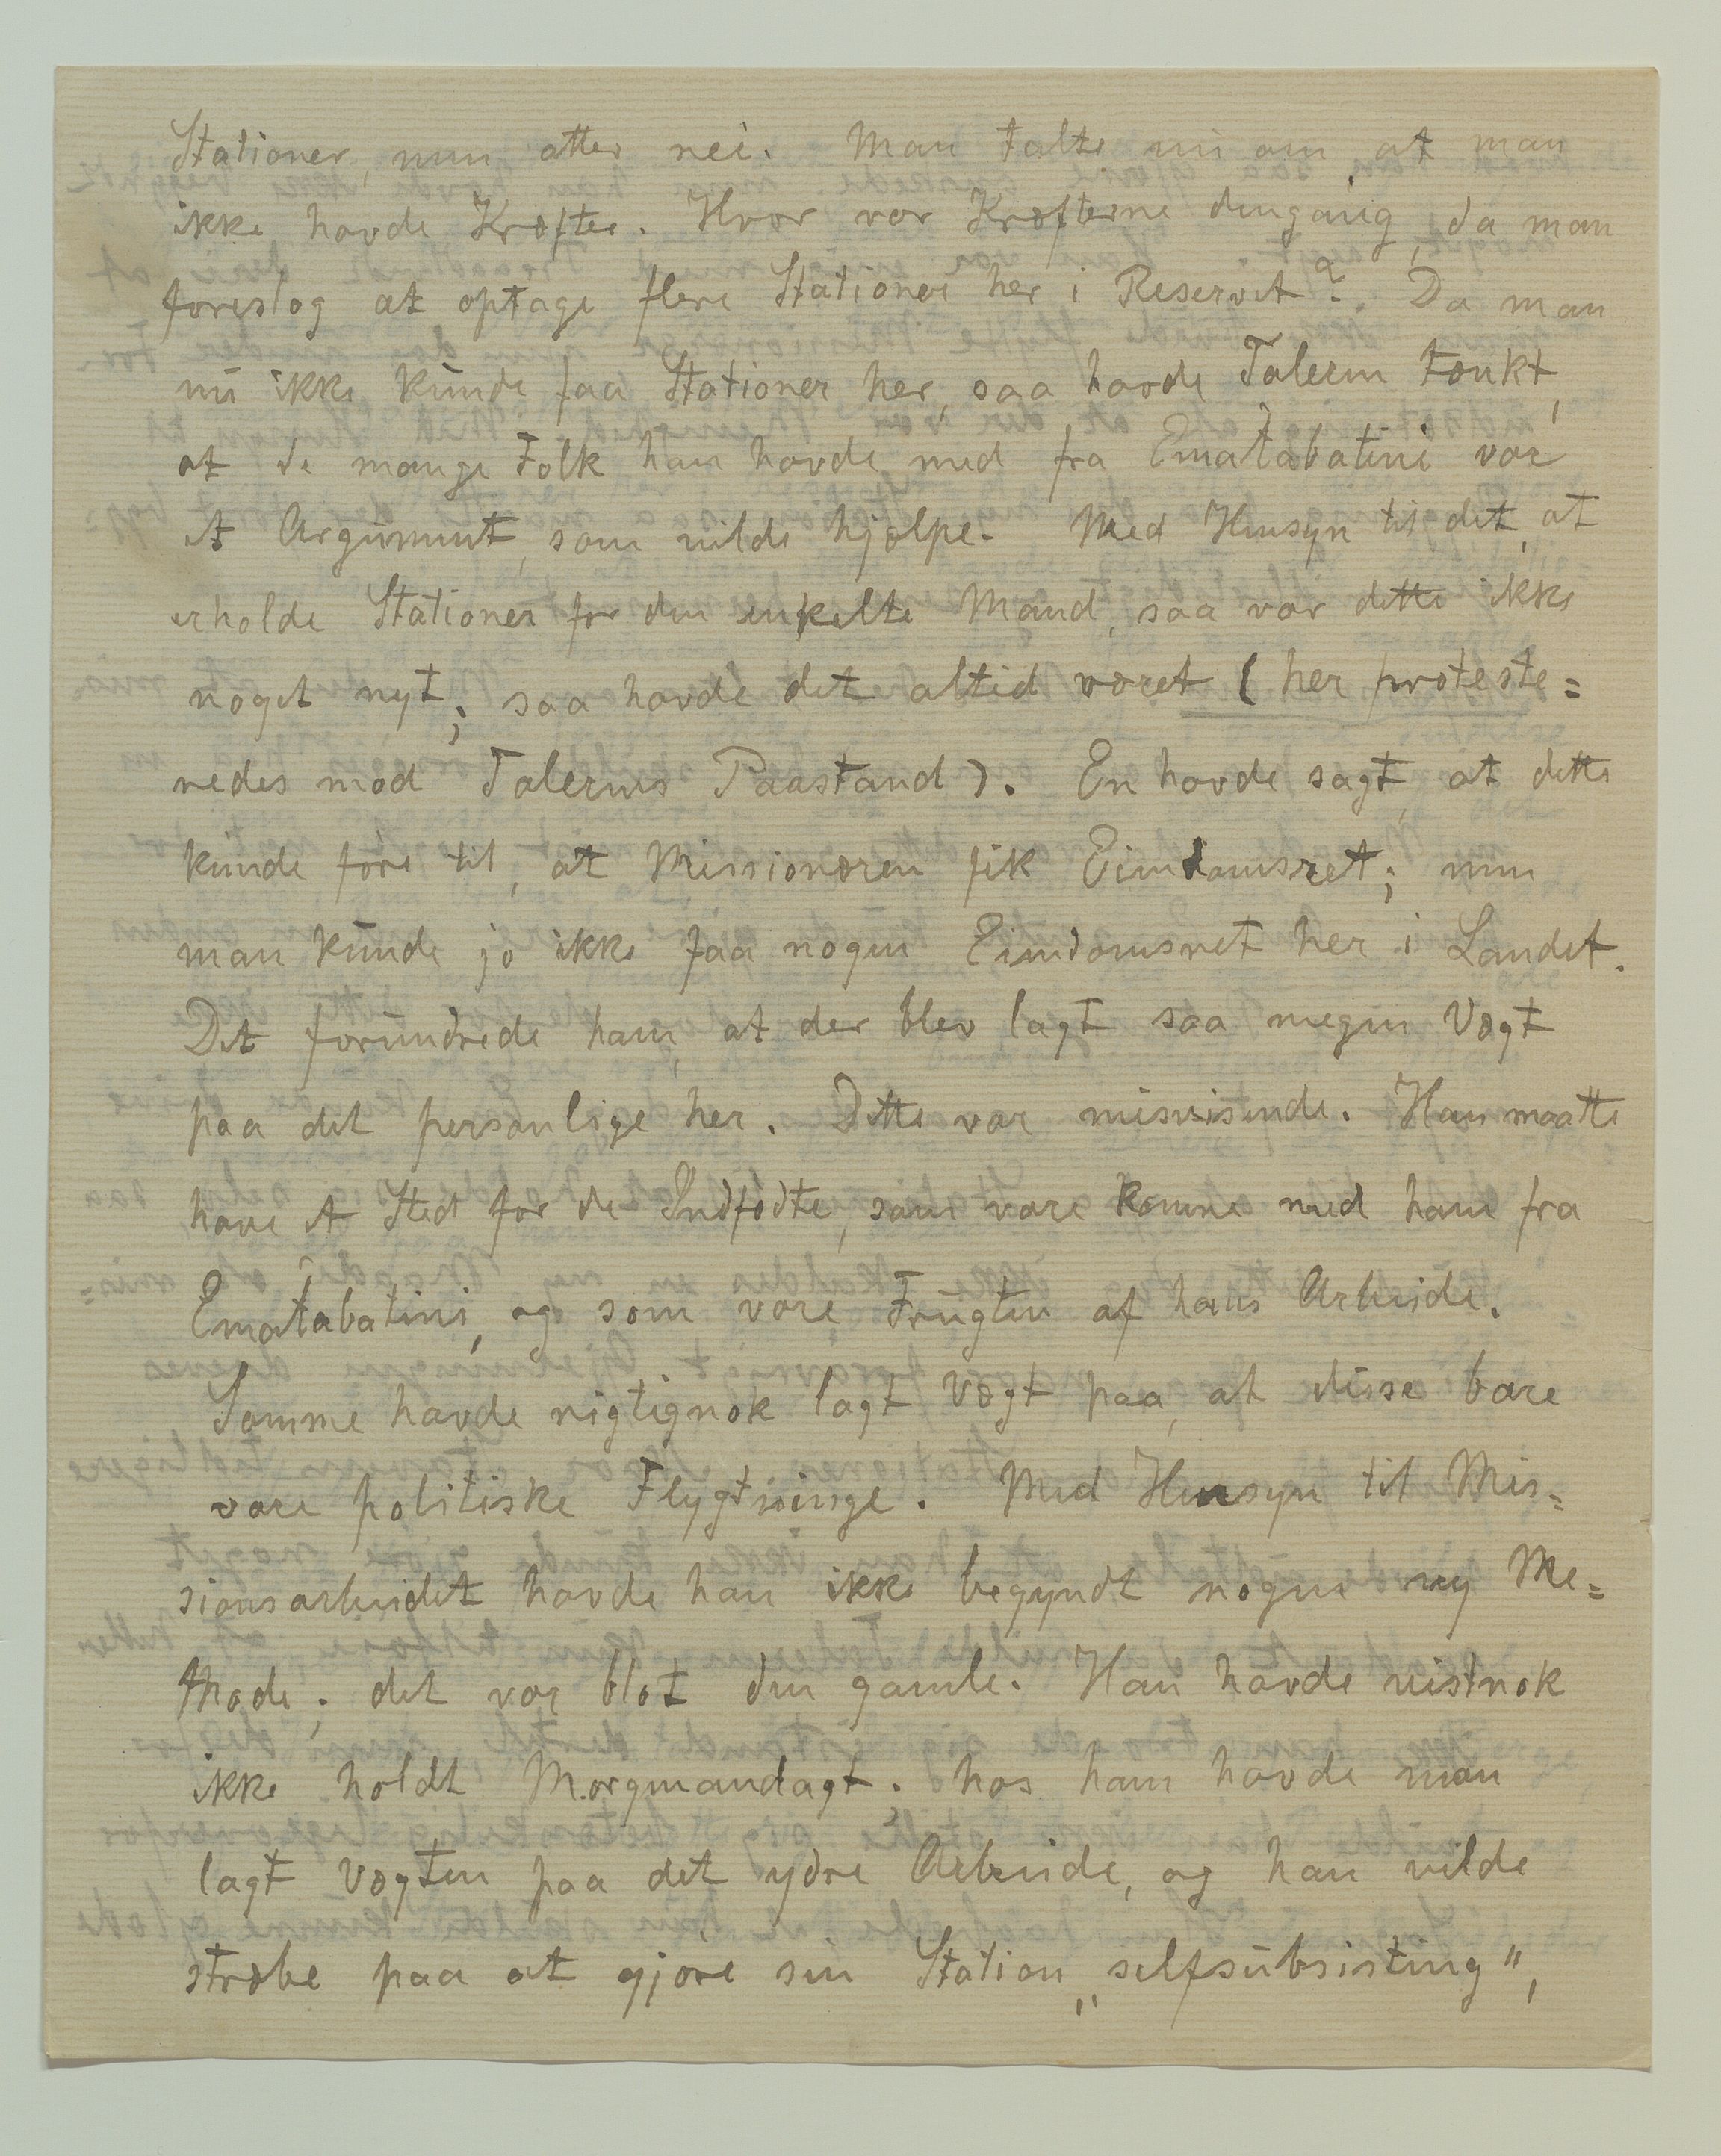 Stationer, men atter nei. Man talte nu om, at man
ikke havde Kræfter. Hvor var Kræfterne dengang, da man
foreslog at optage flere Stationer her i Reservet? Da man
nu ikke kunde faa Stationer her, saa havde Taleren tænkt,
at de mange Folk han havde med fra Ematabatini var
et Argument, som vilde hjælpe. Med Hensyn til det, at
erholde Stationer for den enkelte Mand, saa var dette ikke
noget nyt; saa havde det altid været (her proteste=
redes mod Talerens Paastand). En havde sagt, at dette
kunde føre til, at Missionæren fik Eiendomsret; men
man kunde jo ikke faa nogen Eiendomsret her i Landet.
Det forundrede ham, at der blev lagt saa megen Vægt
paa det personlige her. Dette var misvisende. Han maatte
have et Sted for de Indfødte, som vare komne med ham fra
Ematabatini, og som vare Frugten af hans Arbeide.
Somme havde rigtignok lagt Vægt paa, at disse bare
vare politiske Flygtninge. Med Hensyn til Mis=
sionsarbeidet havde han ikke begyndt nogen ny Me=
thode; det var blot den gamle. Han havde vistnok
ikke holdt Morgenandagt; hos ham havde man
lagt Vægten paa det ydre Arbeide, og han vilde
stræbe paa at gjøre sin Station „selfsubsisting",